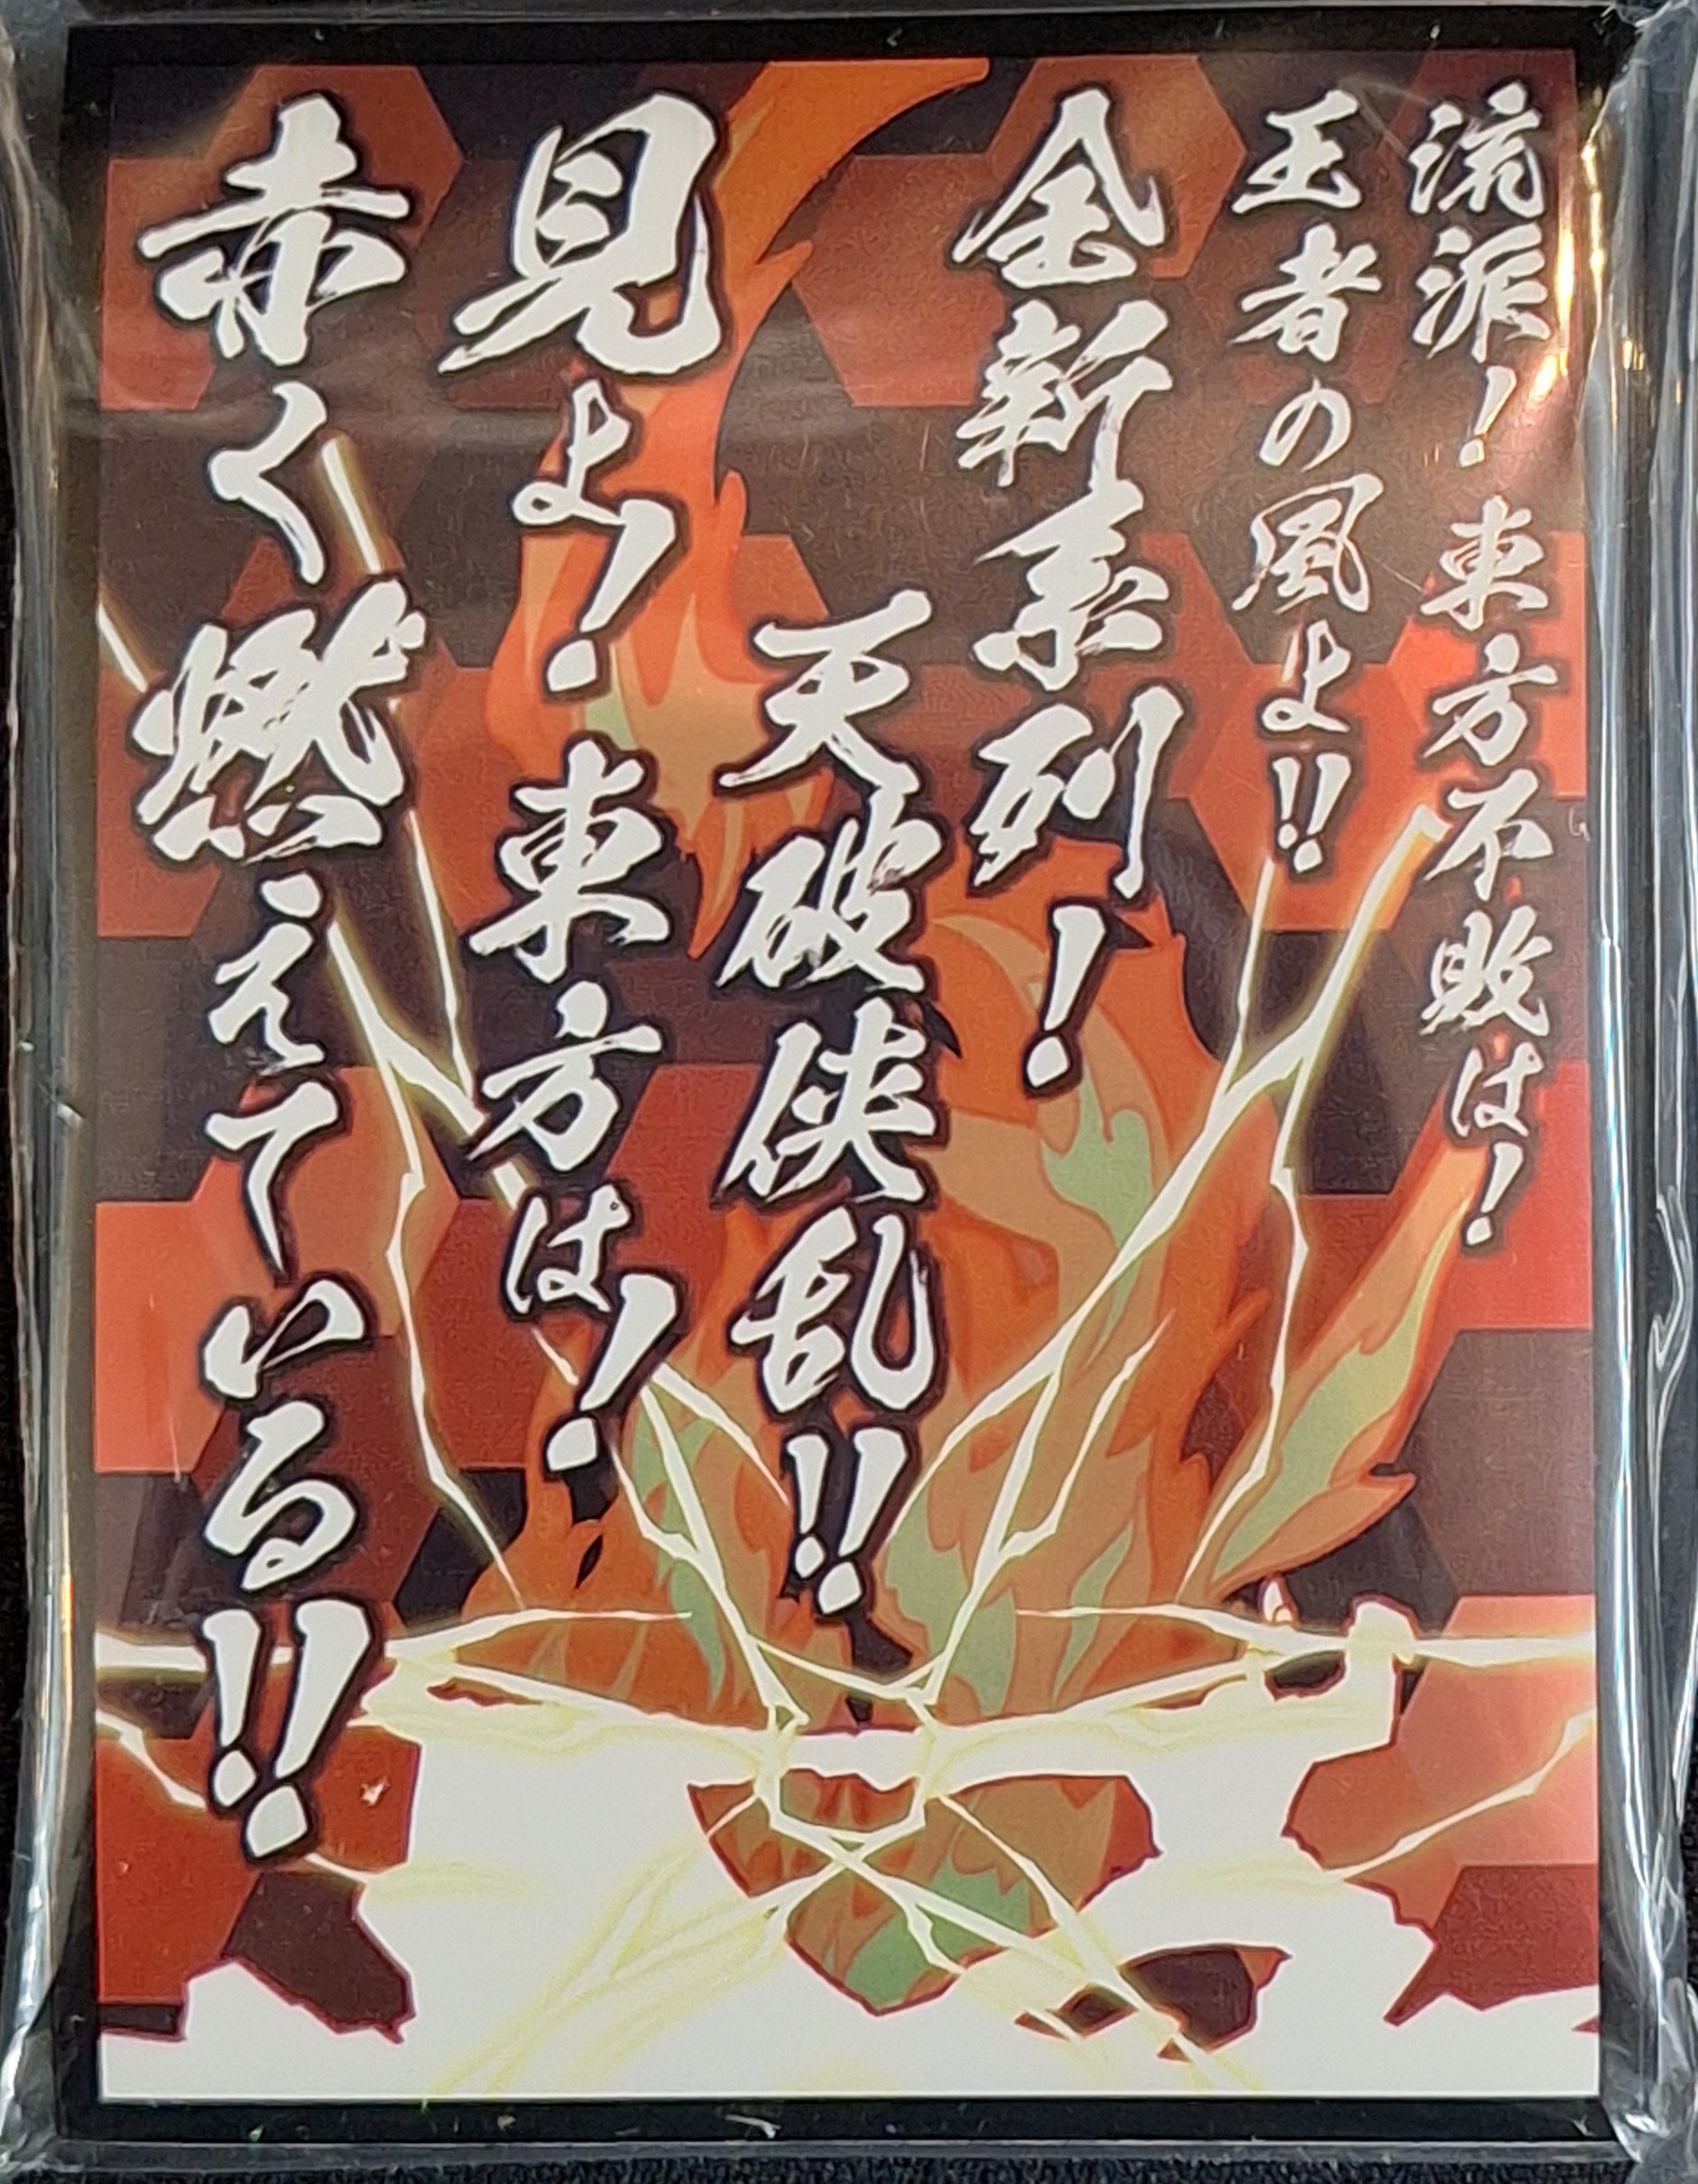 流派!東方不敗は!
王者の風よ!!
全新系列!
天破侠乱!!
見よ!東方は!
赤く燃えている!!